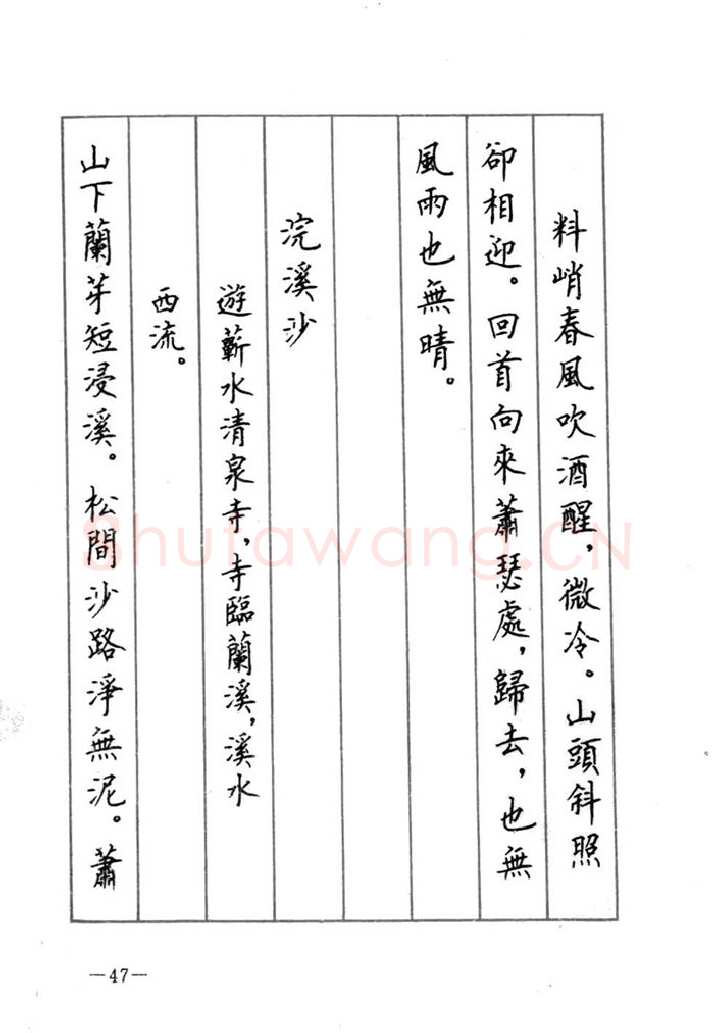 料峭春風吹酒醒，微冷。山頭斜照
卻相迎。回首向來蕭瑟處，歸去，也無
風雨也無晴。
浣溪沙
遊蘄水清泉寺，寺臨蘭溪，溪水
西流。
山下蘭芽短浸溪。松間沙路淨無泥。蕭
—47—
Shufawang.CN